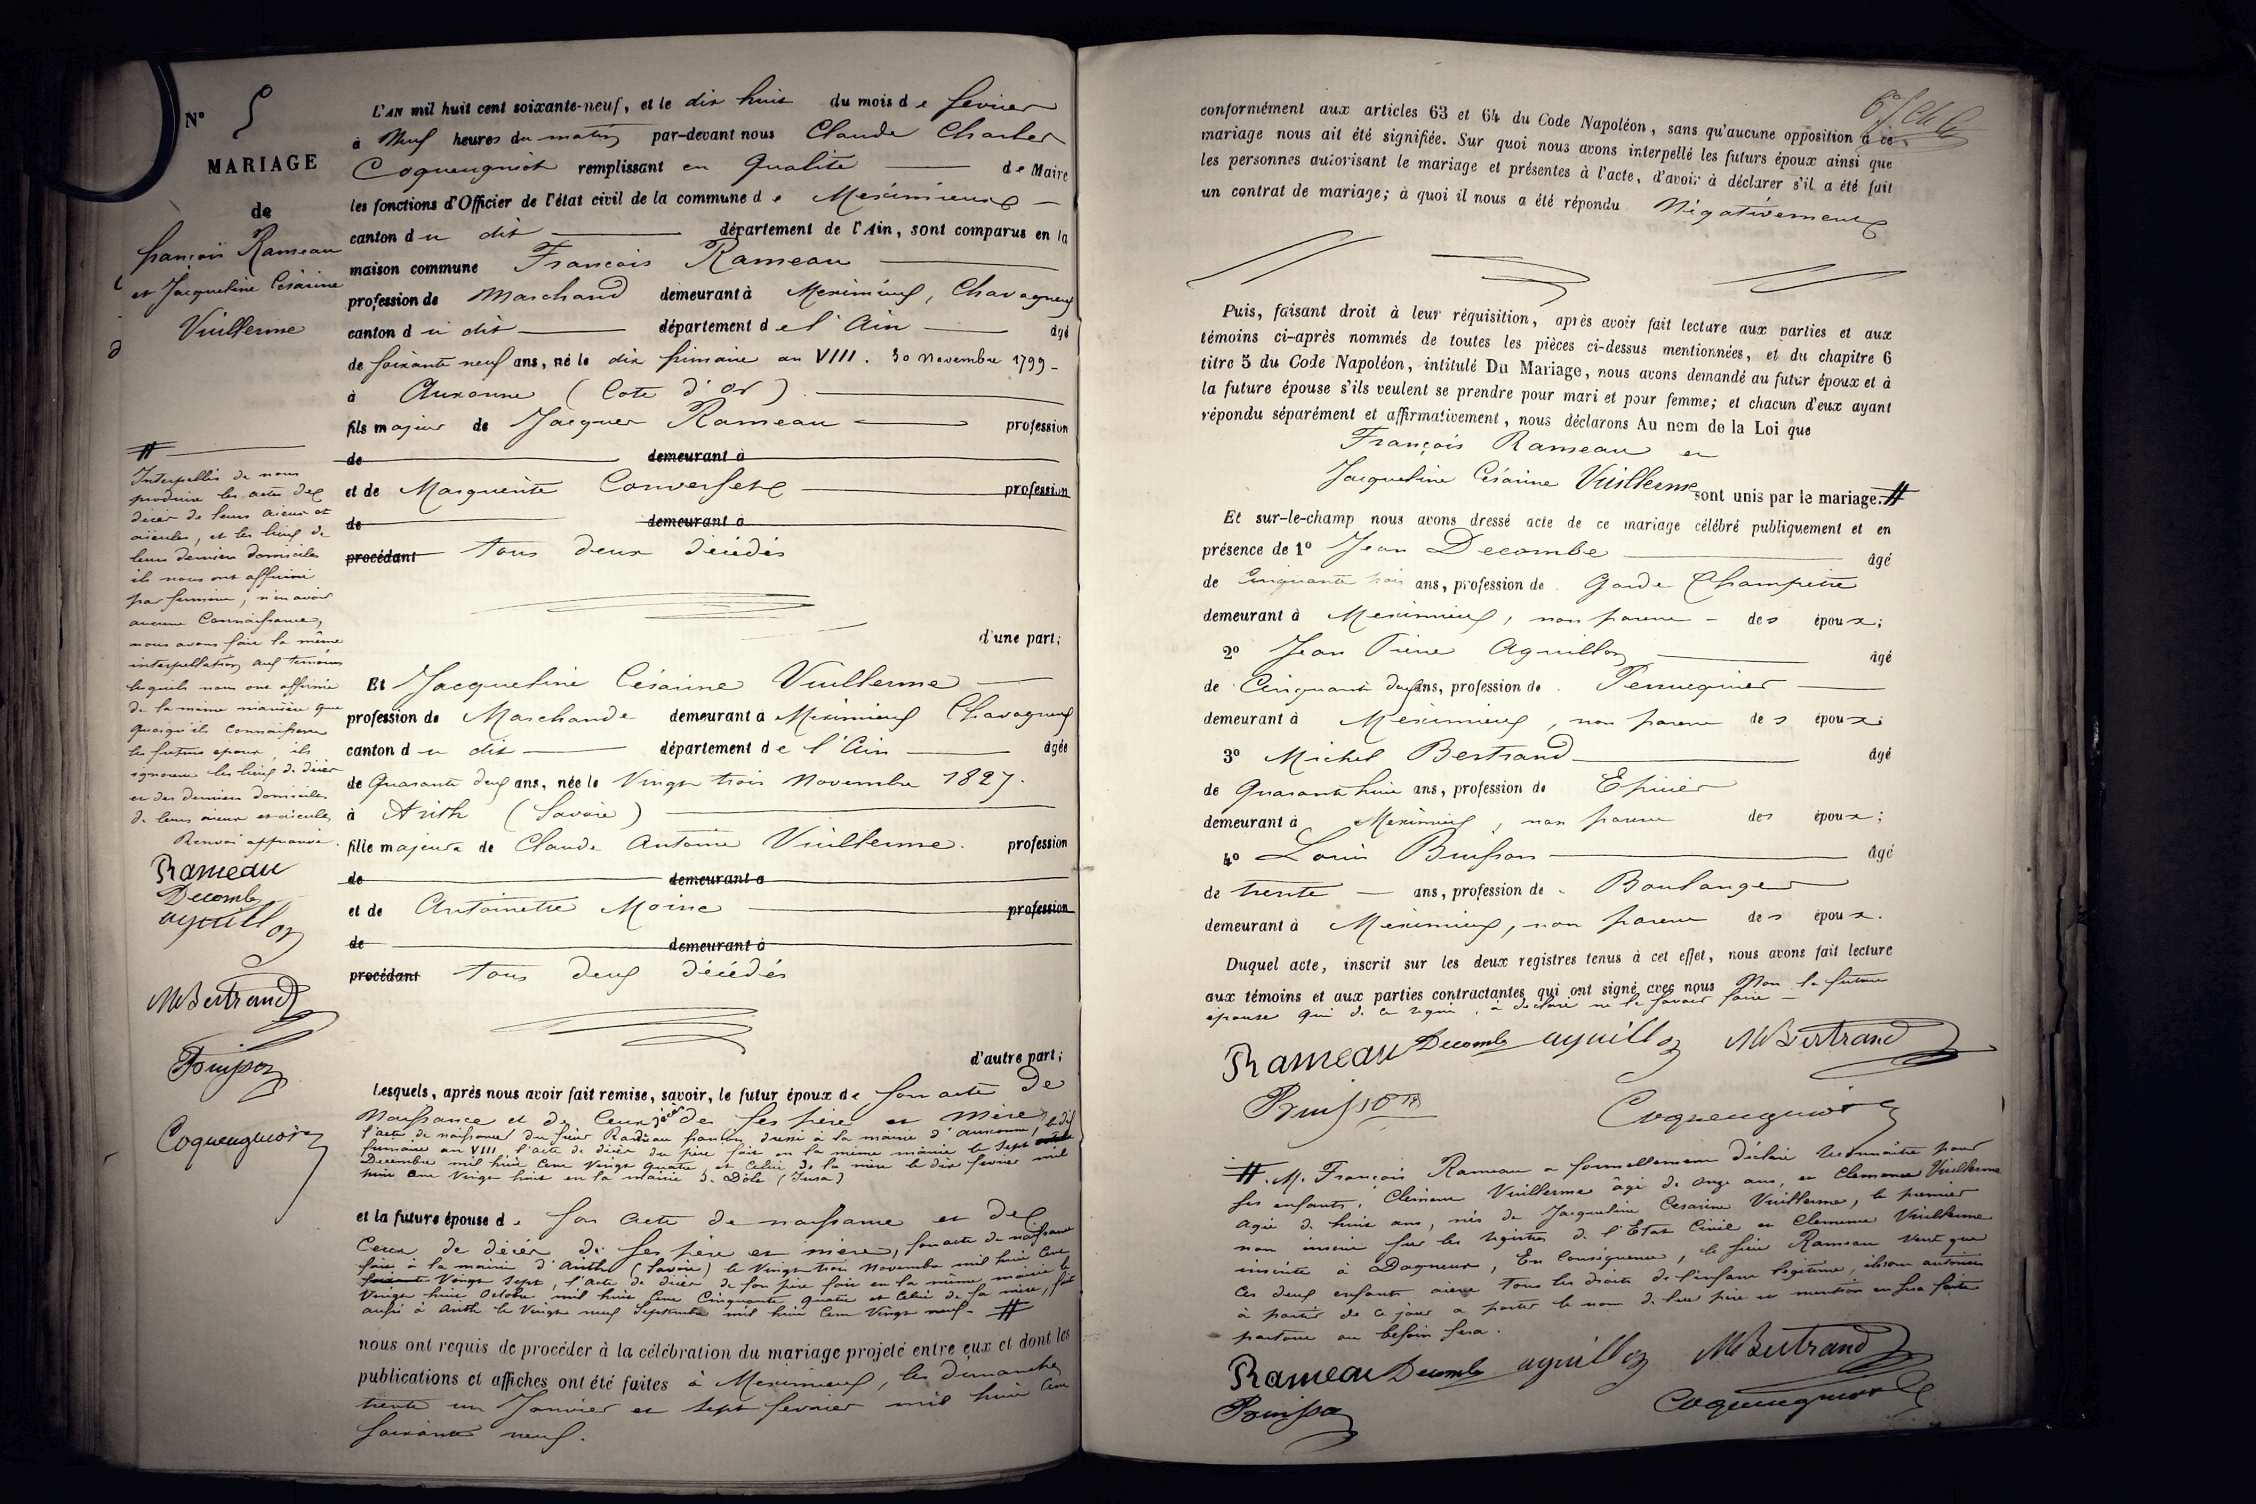 N° 5
MARIAGE
de
françois Rameau
et Jacqueline Césarine
Vuillerme
Interpellés de nous
produire les actes de
décès de leurs aieux et
aieules, et les lieux de
leurs derniers domiciles
ils nous ont affirmé
par serment, n'en avoir
aucune Connaissance,
nous avons fait la même
interpellation aux témoins
lesquels nous ont affirmé
de la même manière que
quoiqu'ils connaissent
les futurs epoux, ils
ignorent les lieux de décès
et des derniers domiciles
de leurs aieux et aieules
Renvoi approuvé.
Rameau
Decombe
aguillon
M Bertrand
Buisson
Coqueugniot
L'AN mil huit cent soixante-neuf, et le dix huit du mois de fevrier
à Neuf heures du matin par-devant nous Claude Charles
Coqueugniot remplissant en Qualité de Maire
les fonctions d'Officier de l'état civil de la commune de Meximieux
canton du dit département de l'Ain, sont comparus en la
maison commune François Rameau
profession de Marchand demeurant à Meximieux, Chavagneux
canton du dit département de l'Ain âgé
de soixante neuf ans, né le dix frimaire an VIII. 30 novembre 1799
à Auxonne (Cote d'or)
fils majeur de Jacques Rameau profession
de demeurant à
et de Marguerite Converset profession
de demeurant à
procédant tous deux décédés
d'une part;
Et Jacqueline Césarine Vuillerme
profession de Marchande demeurant à Meximieux Chavagneux
canton du dit département de l'Ain âgée
de Quarante deux ans, née le Vingt trois Novembre 1827.
à Arith (Savoie)
fille majeure de Claude Antoine Vuillerme. profession
de demeurant à
et de Antoinette Moine profession
de demeurant à
procédant tous deux décédés
d'autre part;
Lesquels, après nous avoir fait remise, savoir, le futur époux de son acte de
Naissance et de Ceux de décès de ses père et mère,
l'acte de naissance du sieur Rameau françois dressé à la mairie d'auxonne, le dix
frimaire an VIII, l'acte de décès du père fait en la même mairie le sept
Decembre mil huit cent vingt quatre, et Celui de la mère le dix fevrier mil
huit cent vingt huit en la mairie de Dôle (Jura)
et la future épouse de son acte de naissance et de
Ceux de décès de ses père et mère, son acte de naissance
fait à la mairie d'Arith (Savoie) le Vingt trois Novembre mil huit Cent
Vingt sept, l'acte de décès de son père fait en la même mairie le
Vingt huit Octobre mil huit Cent Cinquante quatre et Celui de sa mère, fait
aussi à Arith le Vingt neuf Septembre mil huit Cent Vingt neuf.
nous ont requis de procéder à la célébration du mariage projeté entre eux et dont les
publications et affiches ont été faites à Meximieux, les dimanches
trente un Janvier et sept fevrier mil huit Cent
soixante neuf.
conformément aux articles 63 et 64 du Code Napoléon, sans qu'aucune opposition à ce
mariage nous ait été signifiée. Sur quoi nous avons interpellé les futurs époux ainsi que
les personnes autorisant le mariage et présentes à l'acte, d'avoir à déclarer s'il a été fait
un contrat de mariage; à quoi il nous a été répondu Négativement
Puis, faisant droit à leur réquisition, après avoir fait lecture aux parties et aux
témoins ci-après nommés de toutes les pièces ci-dessus mentionnées, et du chapitre 6
titre 5 du Code Napoléon, intitulé Du Mariage, nous avons demandé au futur époux et à
la future épouse s'ils veulent se prendre pour mari et pour femme; et chacun d'eux ayant
répondu séparément et affirmativement, nous déclarons Au nom de la Loi que
François Rameau et
Jacqueline Césarine Vuillerme sont unis par le mariage.
Et sur-le-champ nous avons dressé acte de ce mariage célébré publiquement et en
présence de 1° Jean Decombe âgé
de Cinquante trois ans, profession de Garde Champêtre
demeurant à Meximieux, non parent des époux;
2° Jean Pierre Aguillon âgé
de Cinquante deux ans, profession de Perruquier
demeurant à Meximieux, non parent des époux;
3° Michel Bertrand âgé
de Quarante huit ans, profession de Epicier
demeurant à Meximieux, non parent des époux;
4° Louis Buisson âgé
de trente ans, profession de Boulanger
demeurant à Meximieux, non parent des époux.
Duquel acte, inscrit sur les deux registres tenus à cet effet, nous avons fait lecture
aux témoins et aux parties contractantes qui ont signé avec nous Non la future
epouse qui de ce requise, a déclaré ne le savoir faire
Rameau Decombe aguillon M Bertrand
Buisson Coqueugniot
M. François Rameau a formellement déclaré reconnaitre pour
ses enfants, Clément Vuillerme âgé de onze ans, et Clemence Vuillerme
agée de huit ans, nés de Jacqueline Cesarine Vuillerme, le premier
non inscrit sur les registres de l'Etat Civil et Clemence Vuillerme
inscrite à Dagneux, En Conséquence, le sieur Rameau veut que
Ces deux enfants aient tous les droits de l'enfant légitime, ils sont autorisés
à partir de ce jour a porter le nom de leur père et mention en sera faite
partout ou besoin sera.
Rameau Decombe aguillon M Bertrand
Buisson Coqueugniot